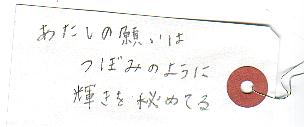 あたしの願いは
つぼみのように
輝きを秘めてる